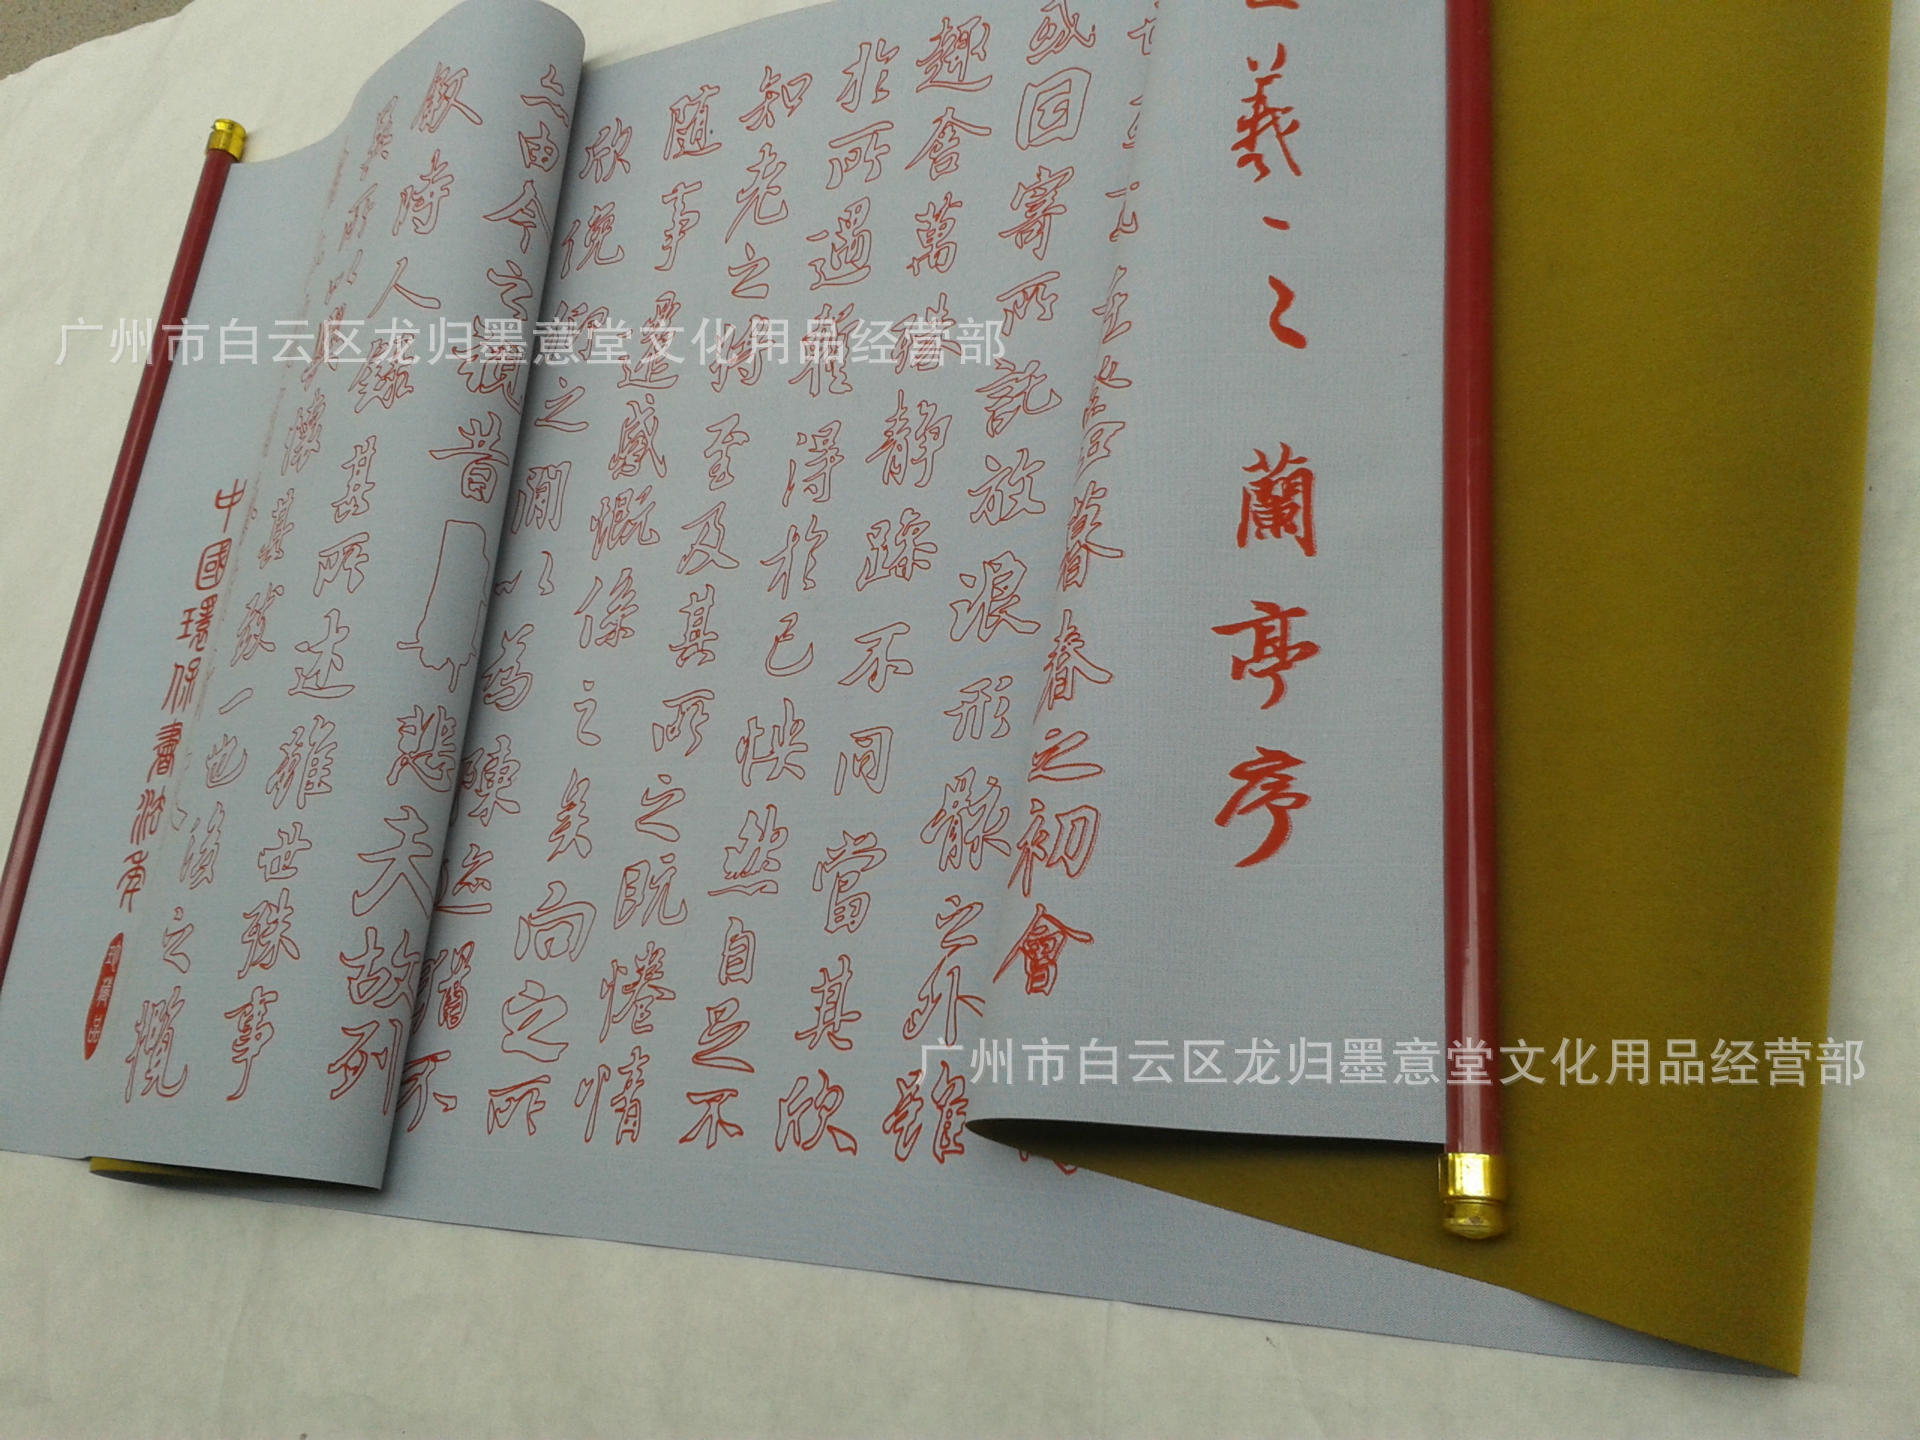 羲之蘭亭序
暮春之初會
或因寄所託放浪形骸之外雖
趣舍萬殊靜躁不同當其欣
於所遇輒得於己怏然自足不
知老之將至及其所之既惓情
随事遷感慨係之矣向之所
欣俛仰之間以為陳迹猶不
今之視昔悲夫故列
叙時人錄其所述雖世殊事
異所以興懷其致一也後之攬
中國環保書法布
广州市白云区龙归墨意堂文化用品经营部
广州市白云区龙归墨意堂文化用品经营部